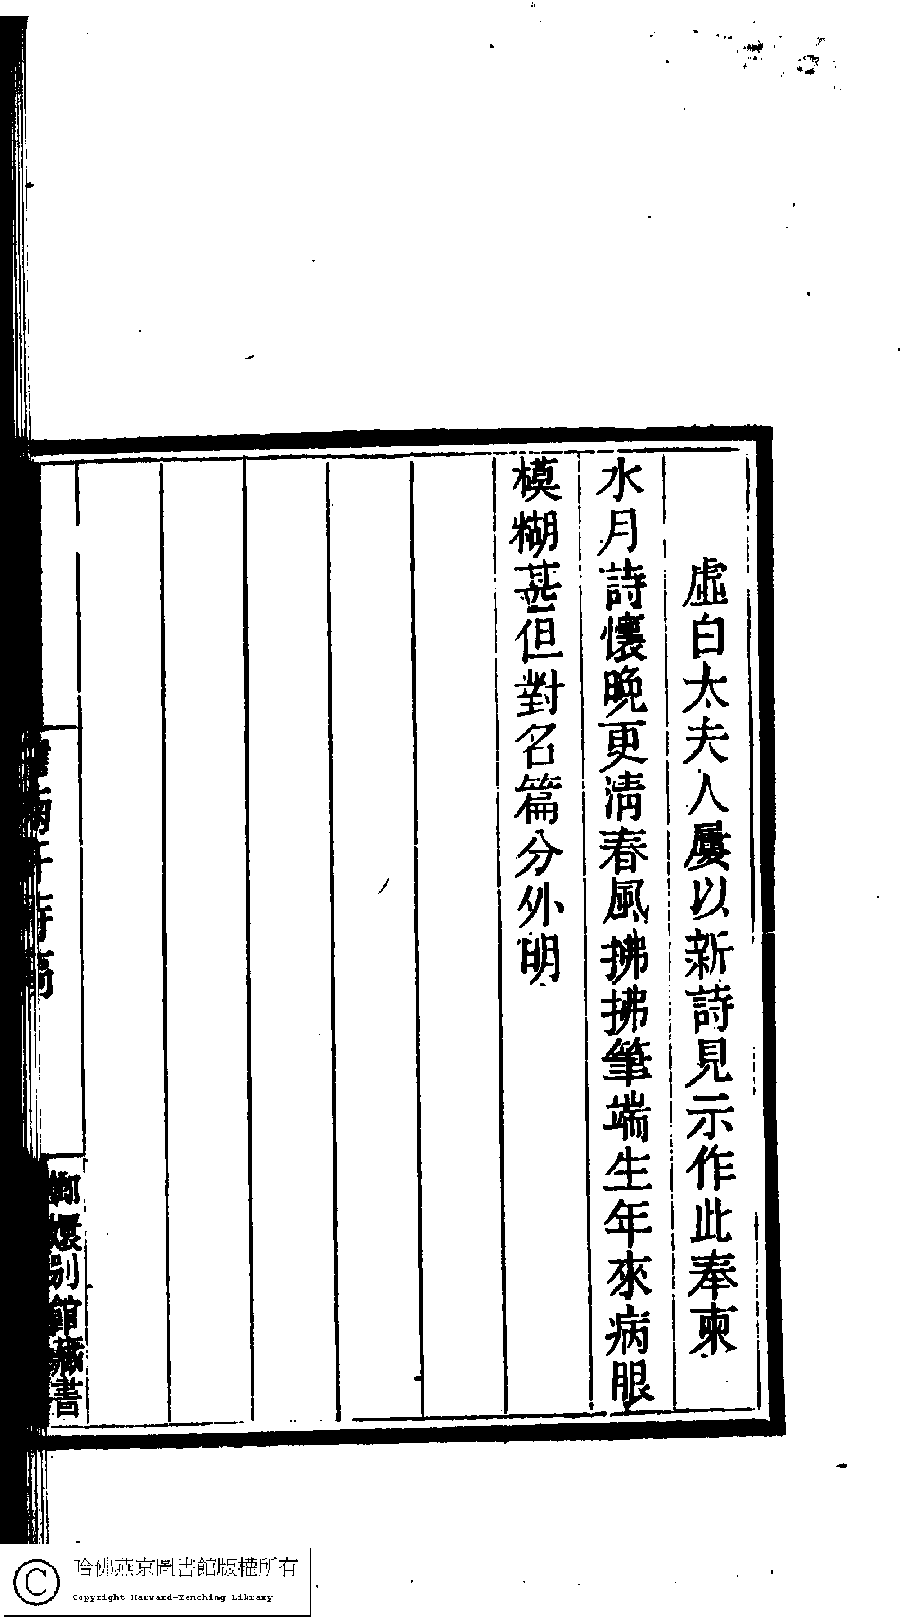 虛白太夫人屢以新詩見示作此奉柬
水月詩懷晚更清春風拂拂筆端生年來病眼
模糊甚但對名篇分外明
嫏嬛別館藏書
哈佛燕京圖書館版權所有
Copyright Harvard-Yenching Library